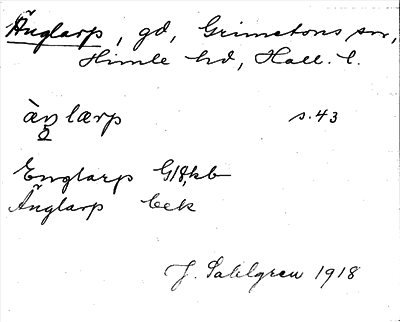 Änglarp, gd, Grimetons sn,
Himle hd, Hall. l.
àŋlærp s. 43
Englarp G18,kb
Änglarp bek
J. Sahlgren 1918